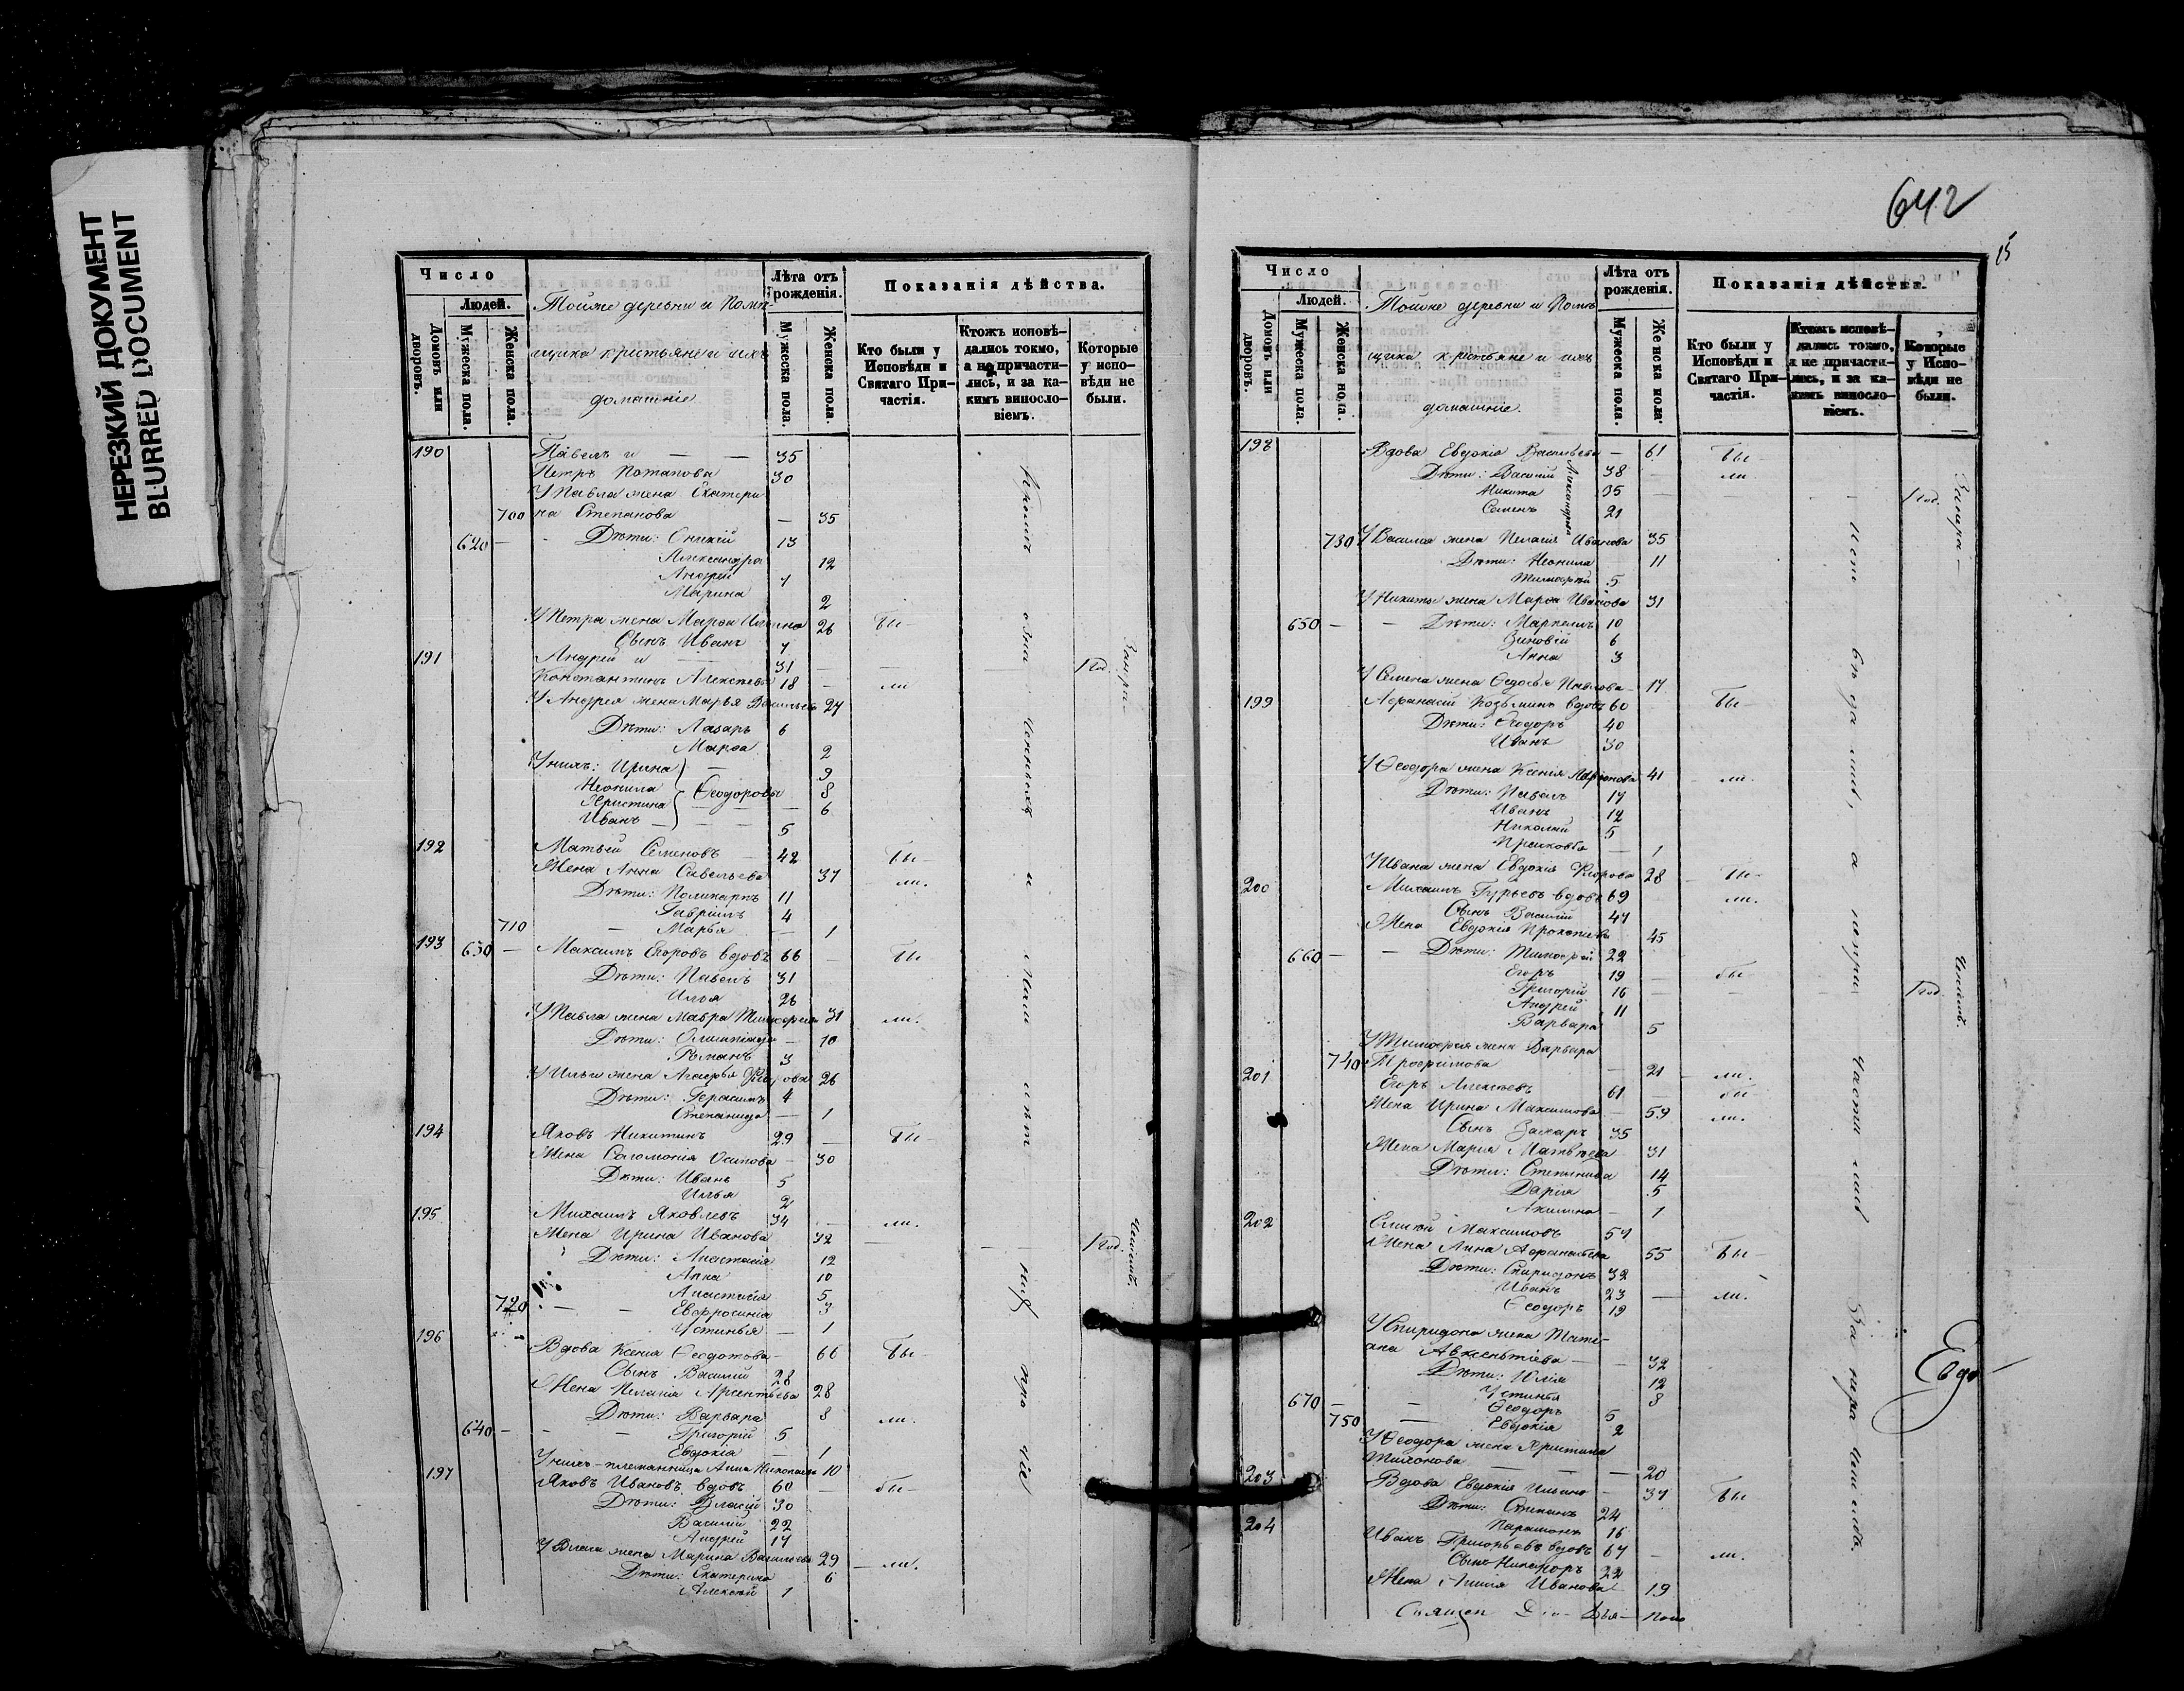 НЕРЕЗКИЙ ДОКУМЕНТ
BLURRED DOCUMENT
Число
Людей.
Домовъ или дворовъ.
Мужеска пола.
Женска пола.
Тойже деревни и Поме-
щика крестьяне и ихъ
домашніе.
Лѣта отъ рожденія.
Мужеска пола.
Женска пола.
Показанія дѣйства.
Кто были у Исповѣди и Святаго При-частія.
Ктожъ исповѣ-дались токмо, а не причасти-лись, и за ка-кимъ винословіемъ.
Которые у испо-вѣди не были.
190 Павелъ и — — 35
Петръ Потапова 30
У Павла жена Екатери
700 на Степанова — 35
620 — Дѣти: 13
Александра 12
Андрей 7
Марина 2
У Петра жена Марѳа Ильина 26 Бы-
Сынъ Иванъ 7
191 Андрей и 31 1 год.
Константинъ Алексѣевы 18 — ли
У Андрея жена Марья Васильева 27
Дѣти: Лазарь 6
Марѳа 2
У нихъ: Ирина — 9
Неонила Ѳеодоровы 8
Христина 6
Иванъ 5
192 Матвей Семеновъ 42 Бы-
Жена Анна Савельева 37 ли.
Дѣти: Поликарпъ 11
Гавріилъ 4
710 Марья — 1
193 630 — Максимъ Егоровъ вдовъ 66 — Бы
Дѣти: Павелъ 31
Илья 26
У Павла жена Мавра Тимофеева 31 ли.
Дѣти: Олимпіада — 10
Романъ 3
У Ильи жена Агафья 26
Дѣти: Герасимъ 4
Степанида — 1
194 Яковъ Никитинъ 29 — Бы-
Жена Соломонія Осипова — 30
Дѣти: Иванъ 5
Илья 2
195 Михаилъ Яковлевъ 34 — ли.
Жена Ирина Иванова 32 1 год.
Дѣти: Анастасія 12
Анна 10
Анастасія 5
720 — — Евфросинія 3
Устинья — 1
196 Вдова Ксенія Ѳеодотова — 66 Бы-
Сынъ Василій 28
Жена Пелагія Арсентьева 28
Дѣти: Варвара 8 ли.
640 — — Григорій 5
Евдокія — 1
У нихъ — племянница Анна Николаева 10
197 Яковъ Ивановъ вдовъ 60 — бы-
Дѣти: Власій 30
Василій 22
Андрей 17
У Власа жена Марина Васильева 29 — ли.
Дѣти: Екатерина 6
Алексѣй 1
Кромѣ
и
нѣтъ
642
15
Число
Людей.
Домовъ или дворовъ.
Мужеска пола.
Женска пола.
Тойже деревни и Поме-
щика крестьяне и ихъ
домашніе.
Лѣта отъ рожденія.
Мужеска пола.
Женска пола.
Показанія дѣйства.
Кто были у Исповѣди и Святаго При-частія.
Ктожъ исповѣ-дались токмо, а не причасти-лись, и за ка-кимъ винословіемъ.
Которые у Испо-вѣди не были.
198 Вдова Евдокія Васильева — 61 Бы-
Дѣти: Василій 38 ли
Никита 35 1 год.
Семенъ 21
730 У Василія жена Пелагія Иванова 35
Дѣти: Неонила 11
Тимофей 5
У Никиты жена Марѳа Иванова 31
650 — — Дѣти: Маркеллъ 10
Зиновій 6
Анна 3
У Семена жена Ѳедосья Павлова — 17
199 Афанасій Козьминъ вдовъ 60 Бы-
Дѣти: Ѳеодоръ 40
Иванъ 30
У Ѳеодора жена Ксенія Ларіонова 41 ли.
Дѣти: Павелъ 17
Иванъ 12
Николай 5
Прасковья — 1
У Ивана жена Евдокія 28 Бы-
200 Михаилъ Гурьевъ вдовъ 69 ли.
Сынъ Василій 47
Жена Евдокія Прокопьева 45
660 — — Дѣти: Тимофей 22
Егоръ 19 — бы
Григорій 16 1 год
Андрей 11
Варвара 5
У Тимофея жена Варвара
740 Трофимова — 21 ли.
201 Егоръ Алексѣевъ 61 — бы
Жена Ирина Максимова — 59 ли.
Сынъ Захаръ 35
Жена Марія Матвѣева 31
Дѣти: Степанида 14
Дарія 5
Акилина — 1
202 Максимовъ 57
Жена Анна Афанасьева 55 Бы-
Дѣти: Спиридонъ 32
Иванъ 23 — ли.
Ѳеодоръ 19
У Спиридона жена Татi-
ана Авксентіева — — 32
Дѣти: Юлія 12
Устинья 8
670 — — Ѳеодоръ 5
750 — Евдокія 2
У Ѳеодора жена Христина
Тихонова — — — 20
203 Вдова Евдокія Ильина — 37 Бы
Дѣти: Степанъ 24
Парамонъ 16
204 Иванъ Григорьевъ вдовъ 67 — ли.
Сынъ Никифоръ 22
Жена Иванова 19
Евдо